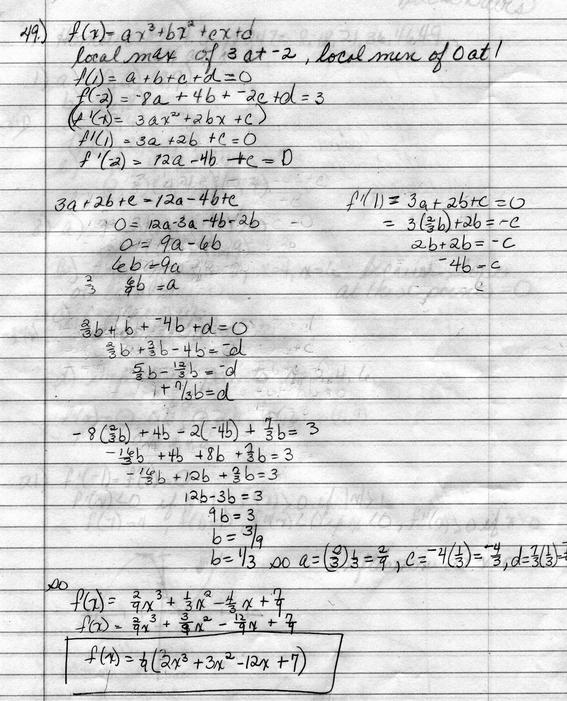 49.) f(x) = ax³+bx²+cx+d
local max of 3 at -2, local min of 0 at 1
f(1) = a+b+c+d=0
f(-2) = -8a + 4b + -2c+d=3
(f'(x) = 3ax²+2bx+c)
f'(1) = 3a+2b+c=0
f'(-2) = 12a-4b+c=0
3a+2b+c=12a-4b+c
0=12a-3a-4b-2b
0=9a-6b
6b=9a
2/3 6/9b=a
f'(1) = 3a+2b+c=0
= 3(2/3b)+2b=-c
2b+2b=-c
-4b=c
c
2/3b+b+-4b+d=0
2/3b+3/3b-4b=-d
5/3b-12/3b=-d
+7/3b=d
-8(2/3b)+4b-2(-4b)+7/3b=3
-16/3b+4b+8b+7/3b=3
-16/3b+12b+7/3b=3
12b-3b=3
9b=3
b=3/9
b=1/3 so a=(2/3)1/3=2/9, c=-4(1/3)=-4/3, d=7/3(1/3)=7
so
f(x) = 2/9x³+1/3x²-4/3x+7/9
f(x) = 2/9x³+3/9x²-12/9x+7/9
f(x) = 1/9(2x³+3x²-12x+7)